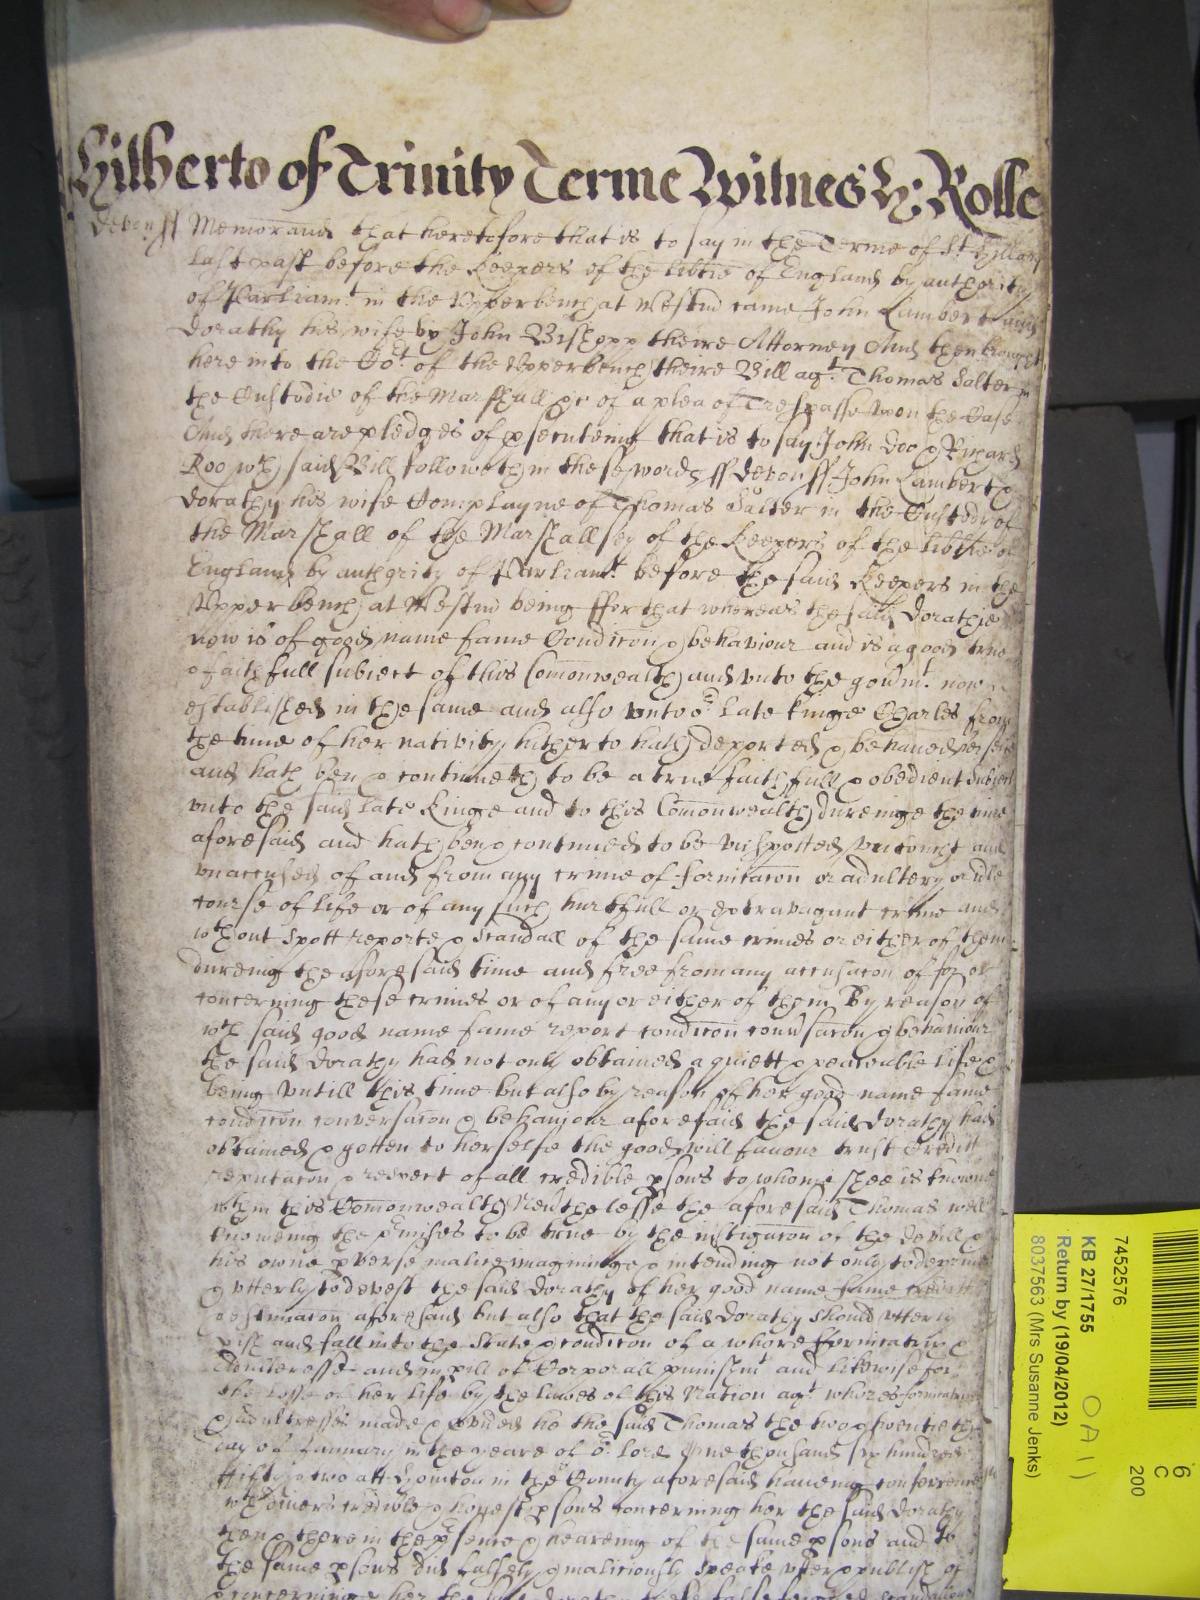 Hitherto of Trinity Terme Witnes H: Rolle
Devon ss Memorand that heretofore that is to say in the Terme of St Hillary
last past before the Keepers of the libtie of England by authority
of Parliamt in the Upperbench at Westm came John Lambert and
Dorathy his wife by John Bishopp theire Attorney And then brought
here into the Cot of the Upperbench theire Bill agt Thomas Salter in
the Custodie of the Marshall &c of a plea of Trespasse upon the Case
And there are pledges of psecuteing that is to say John Doo & Richard
Roo wch said Bill followeth in these words ss Devon ss John Lambert &
Dorathy his wife Complayne of Thomas Salter in the Custody of
the Marshall of the Marshallsey of the Keepers of the libtie of
England by authority of Parliamt before the said Keepers in the
Upper bench at Westm being ffor that whereas the said Dorathie
now is of good name fame Condicon & behaviour and is a good true
& faithfull subiect of this Comonwealth and unto the govmt now
established in the same and also unto or late Kinge Charles from
the time of her nativity hitherto hath deported & behaved herselfe
and hath ben & continueth to be a true faithfull & obedient subiect
unto the said late Kinge and to this Comonwealth dureinge the time
aforesaid and hath ben & continued to be unspotted untoucht and
unaccused of and from any crime of fornicacon or adultery or idle
course of life or of any such hurtfull or extravagant crime and
wthout spott reporte & scandall of the same crimes or either of them
dureing the aforesaid time and free from any accusacon of for or
concerning these crimes or of any or either of them By reason of
wch said good name fame report condicon convsacon & behaviour
the said Dorathy had not only obtained a quiett & peaceable life &
being untill this time but also by reason of her good name fame
condicon conversacon & behaviour aforesaid the said Dorathy had
obtained & gotten to herselfe the good will favour trust Creditt
reputacon & respect of all credible psons to whome shee is knowne
wthin this Comonwealth Nevthelesse the aforesaid Thomas well
knoweing the pmises to be true by the instigacon of the devill &
his owne pverse malice imagininge & intending not only to deprive
& utterly to devest the said Dorathy of her good name fame creditt
& estimacon aforesaid but also that the said Dorathy should utterly
and fall into the State & condicon of a whore ffornicatrix &
Adulteresse and in pill of Corporall punishmt and likewise for
the losse of her life by the lawes of this Nation agt whores fornicatrixes
& adultresses made & pvided he the said Thomas the two & twentieth
day of January in the yeare of or Lord One thousand six hundred
ffifty & two att Honiton in the County aforesaid haveing conference
wth divers credible & honest psons concerning her the said Dorathy
then & there in the psence & heareing of the same psons and to
the same psons did falsely & maliciously speake utter & publish of
& concerning her the said Dorathy these false feigned scandalous
7452576
KB 27/1755
Return by (19/04/2012)
8037563 (Mrs Susanne Jenks)
OA1)
6
C
200